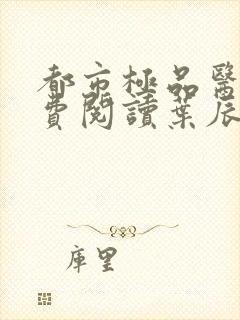 都市極品醫
費閱讀葉辰
庫里